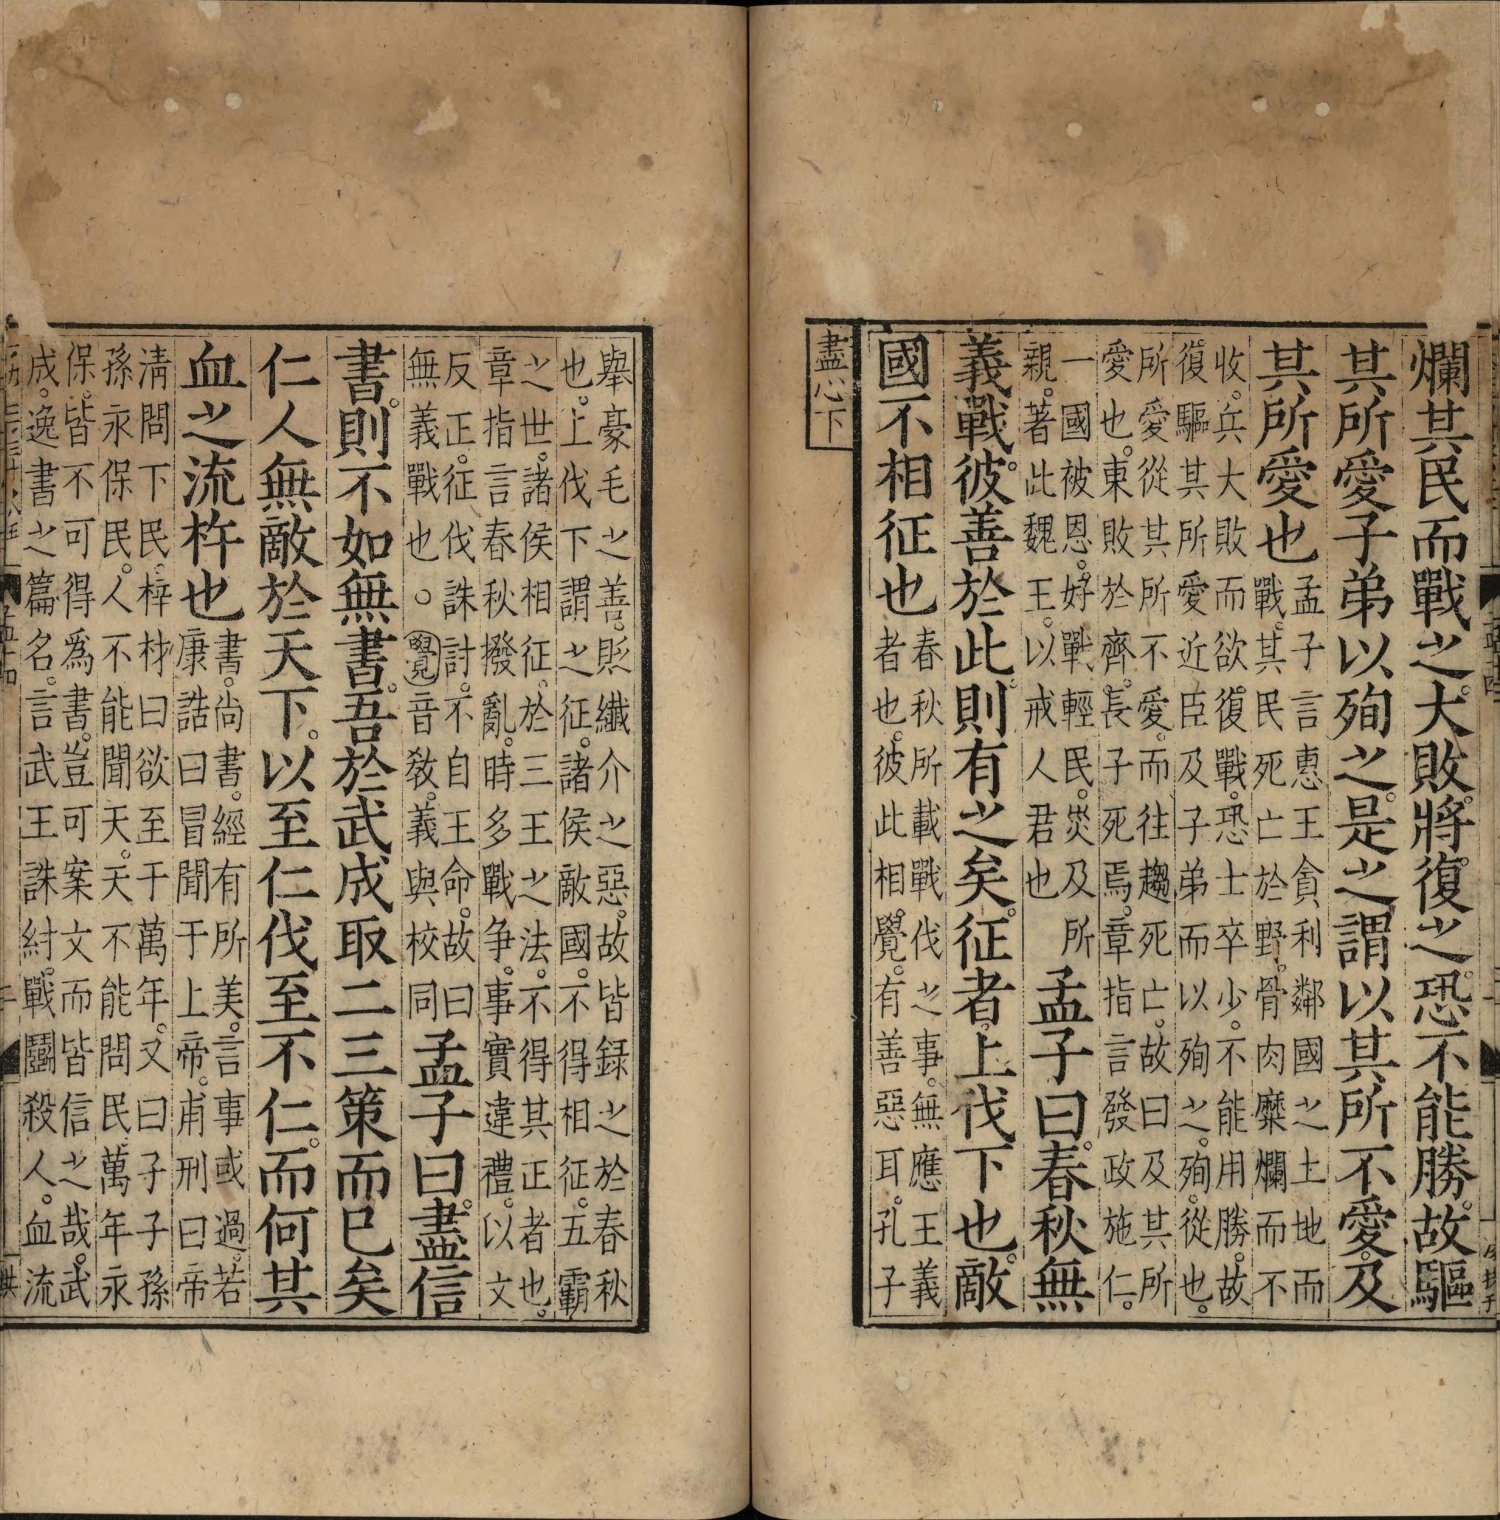 爛其民而戰之。大敗。將復之。恐不能勝。故驅
其所愛子弟以殉之。是之謂以其所不愛。及
其所愛也
孟子言惠王貪利鄰國之土地而
戰。其民死亡於野。骨肉糜爛而不
收。兵大敗而欲復戰。恐士卒少。不能用勝。故
復驅其所愛近臣及子弟而以殉之。殉。從也。
所愛從其所不愛。而往趨死亡。故曰及其所
愛也。東敗於齊。長子死焉。章指言發政施仁。
一國被恩。好戰輕民。災及所
親。著此魏王。以戒人君也
孟子曰。春秋無
義戰。彼善於此。則有之矣。征者。上伐下也。敵
國不相征也
春秋所載戰伐之事。無應王義
者也。彼此相覺。有善惡耳。孔子
盡心下
舉豪毛之善。貶纖介之惡。故皆録之於春秋
也。上伐下謂之征。諸侯敵國。不得相征。五霸
之世。諸侯相征。於三王之法。不得其正者也。
章指言春秋撥亂。時多戰争。事實違禮。以文
反正。征伐誅討。不自王命。故曰
無義戰也。○覺音敎。義與校同
孟子曰。盡信
書。則不如無書。吾於武成取二三策而已矣
仁人無敵於天下。以至仁伐至不仁。而何其
血之流杵也
書。尚書。經有所美。言事或過。若
康誥曰冒聞于上帝。甫刑曰帝
清問下民。梓材曰欲至于萬年。又曰子子孫
孫永保民。人不能聞天。天不能問民。萬年永
保。皆不可得爲書。豈可案文而皆信之哉。武
成。逸書之篇名。言武王誅紂。戰鬭殺人。血流